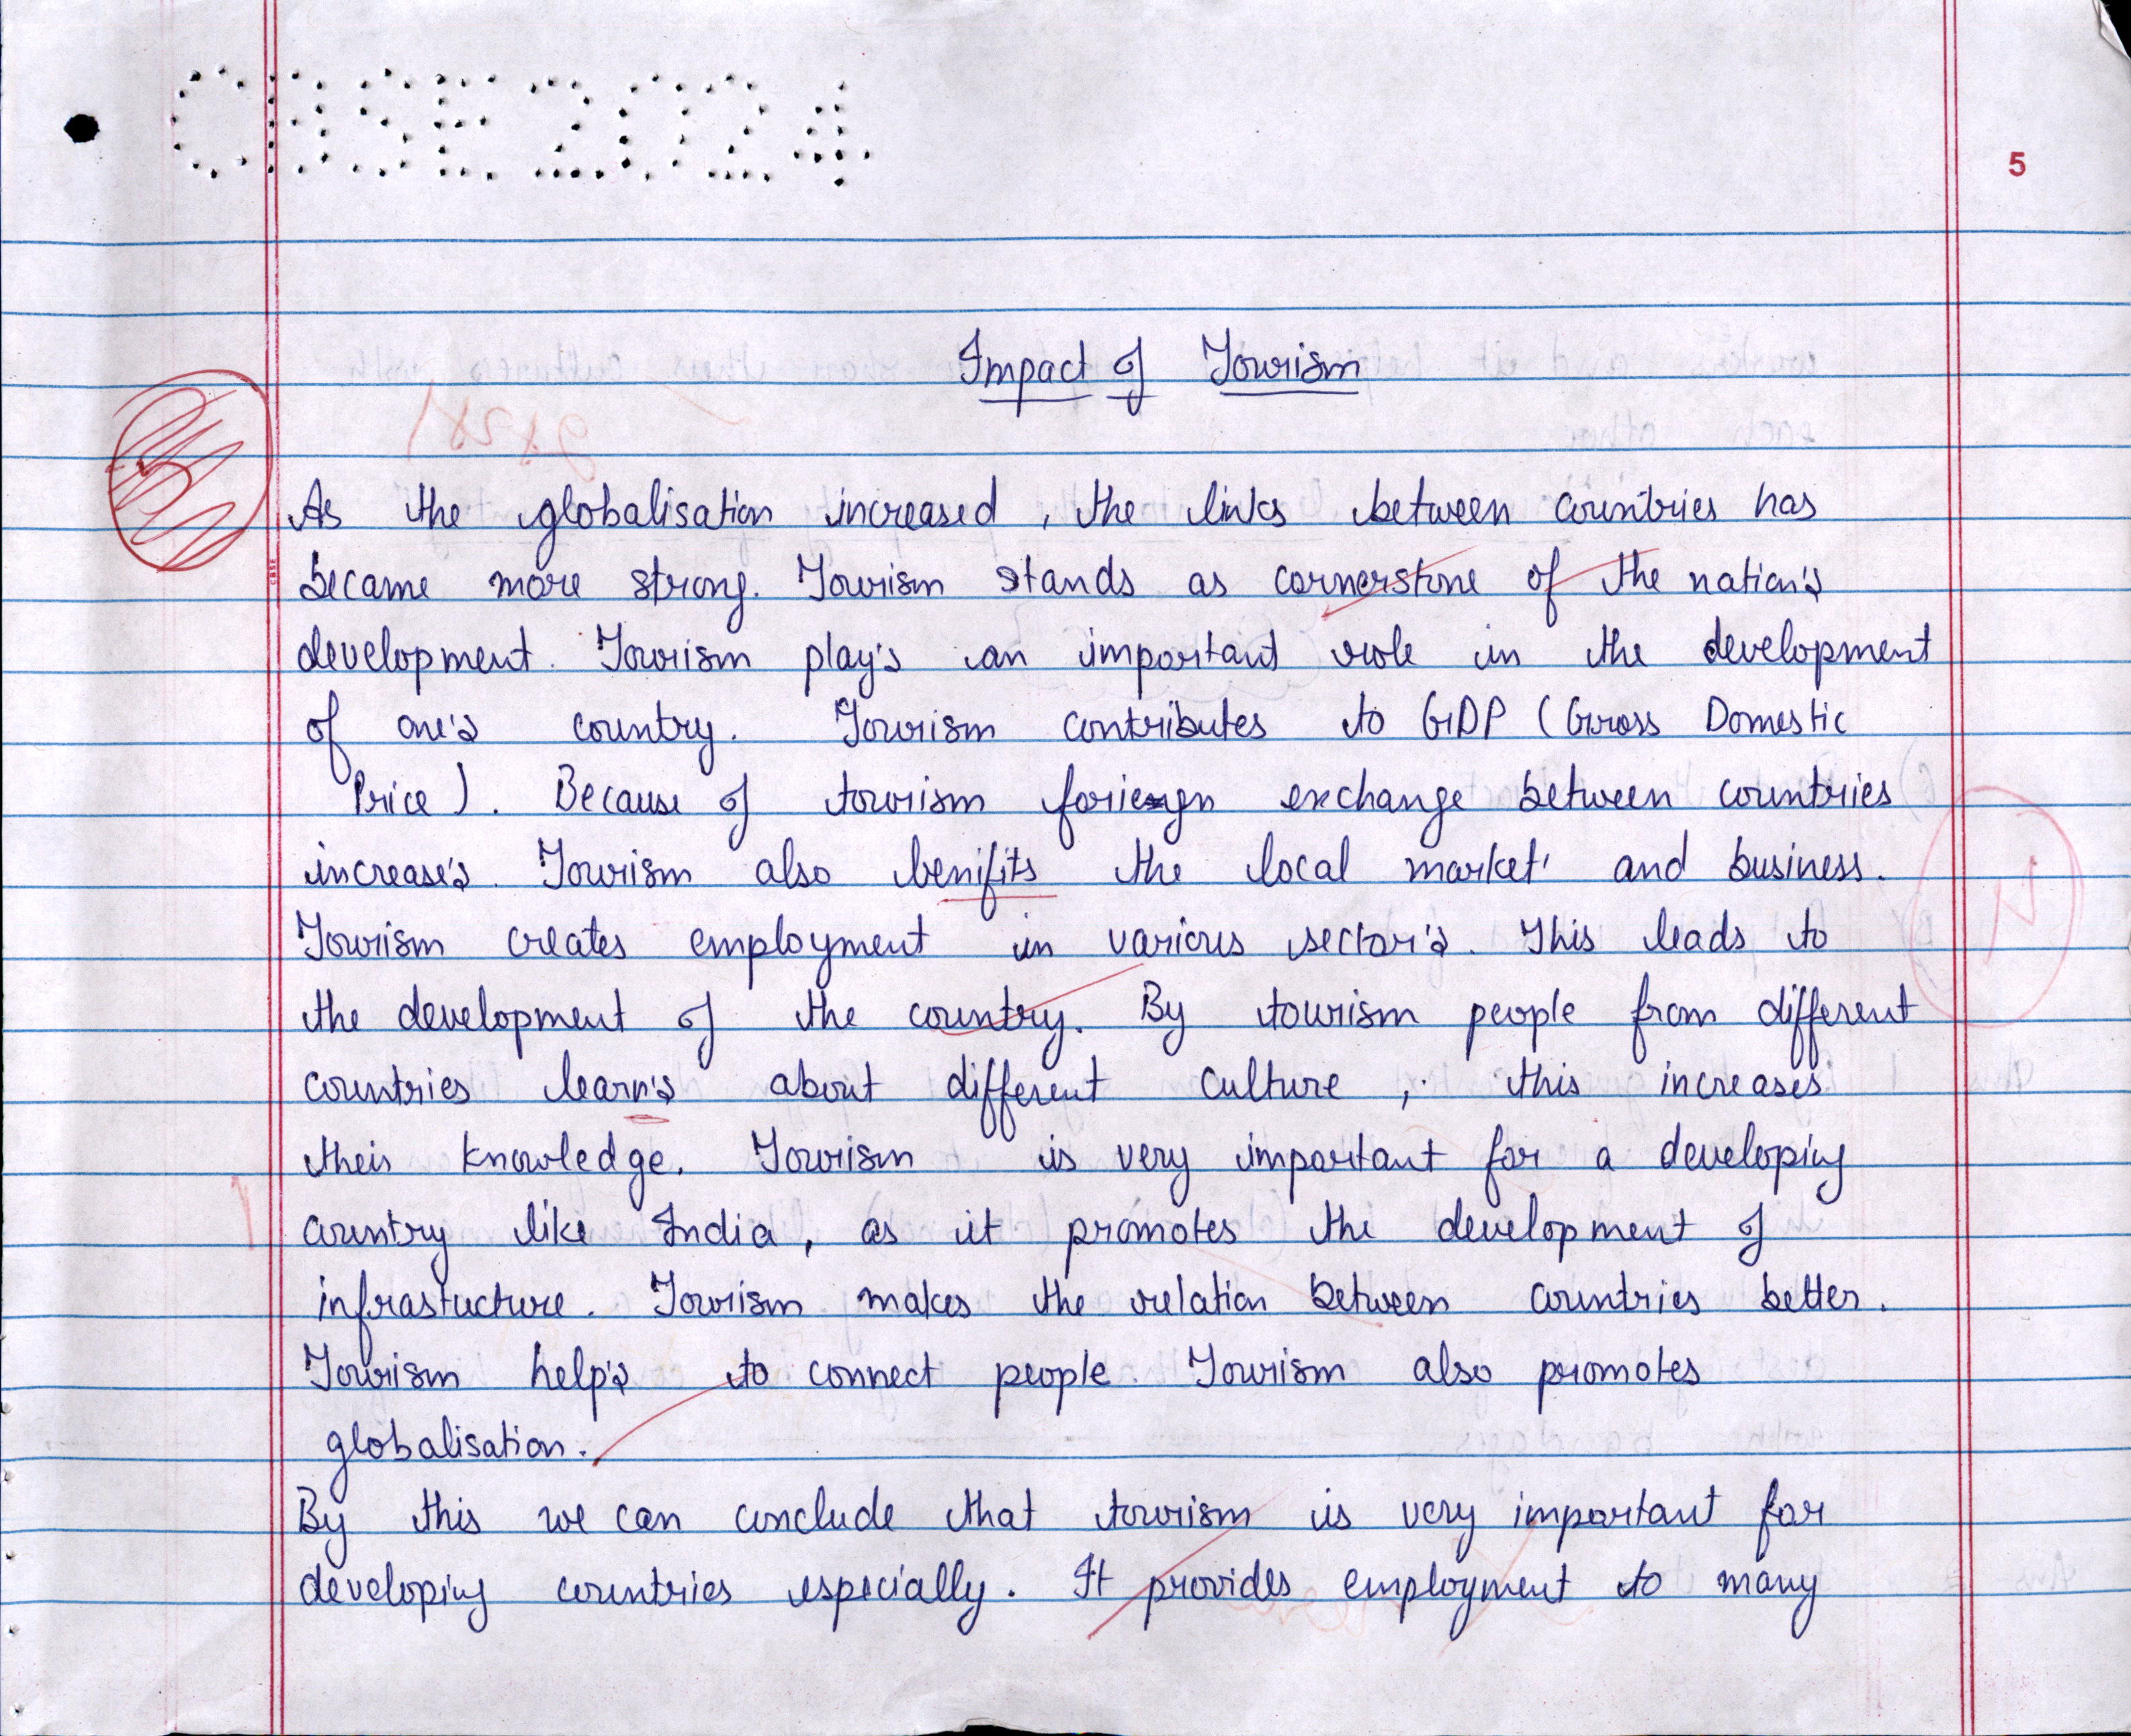 CBSE 2024
5
Impact of Tourism
As the globalisation increased, the links between countries has
became more strong. Tourism stands as cornerstone of the nation's
development. Tourism play's an important role in the development
of one's country. Tourism contributes to GDP (Gross Domestic
Price). Because of tourism foriegn exchange between countries
increase's. Tourism also benifits the local market' and business.
Tourism creates employment in various sector's. This leads to
the development of the country. By tourism people from different
countries learn's about different culture, this increases
their knowledge. Tourism is very important for a developing
country like India, as it promotes the development of
infrastucture. Tourism makes the relation between countries better.
Tourism help's to connect people. Tourism also promotes
globalisation.
By this we can conclude that tourism is very important for
developing countries especially. It provides employment to many